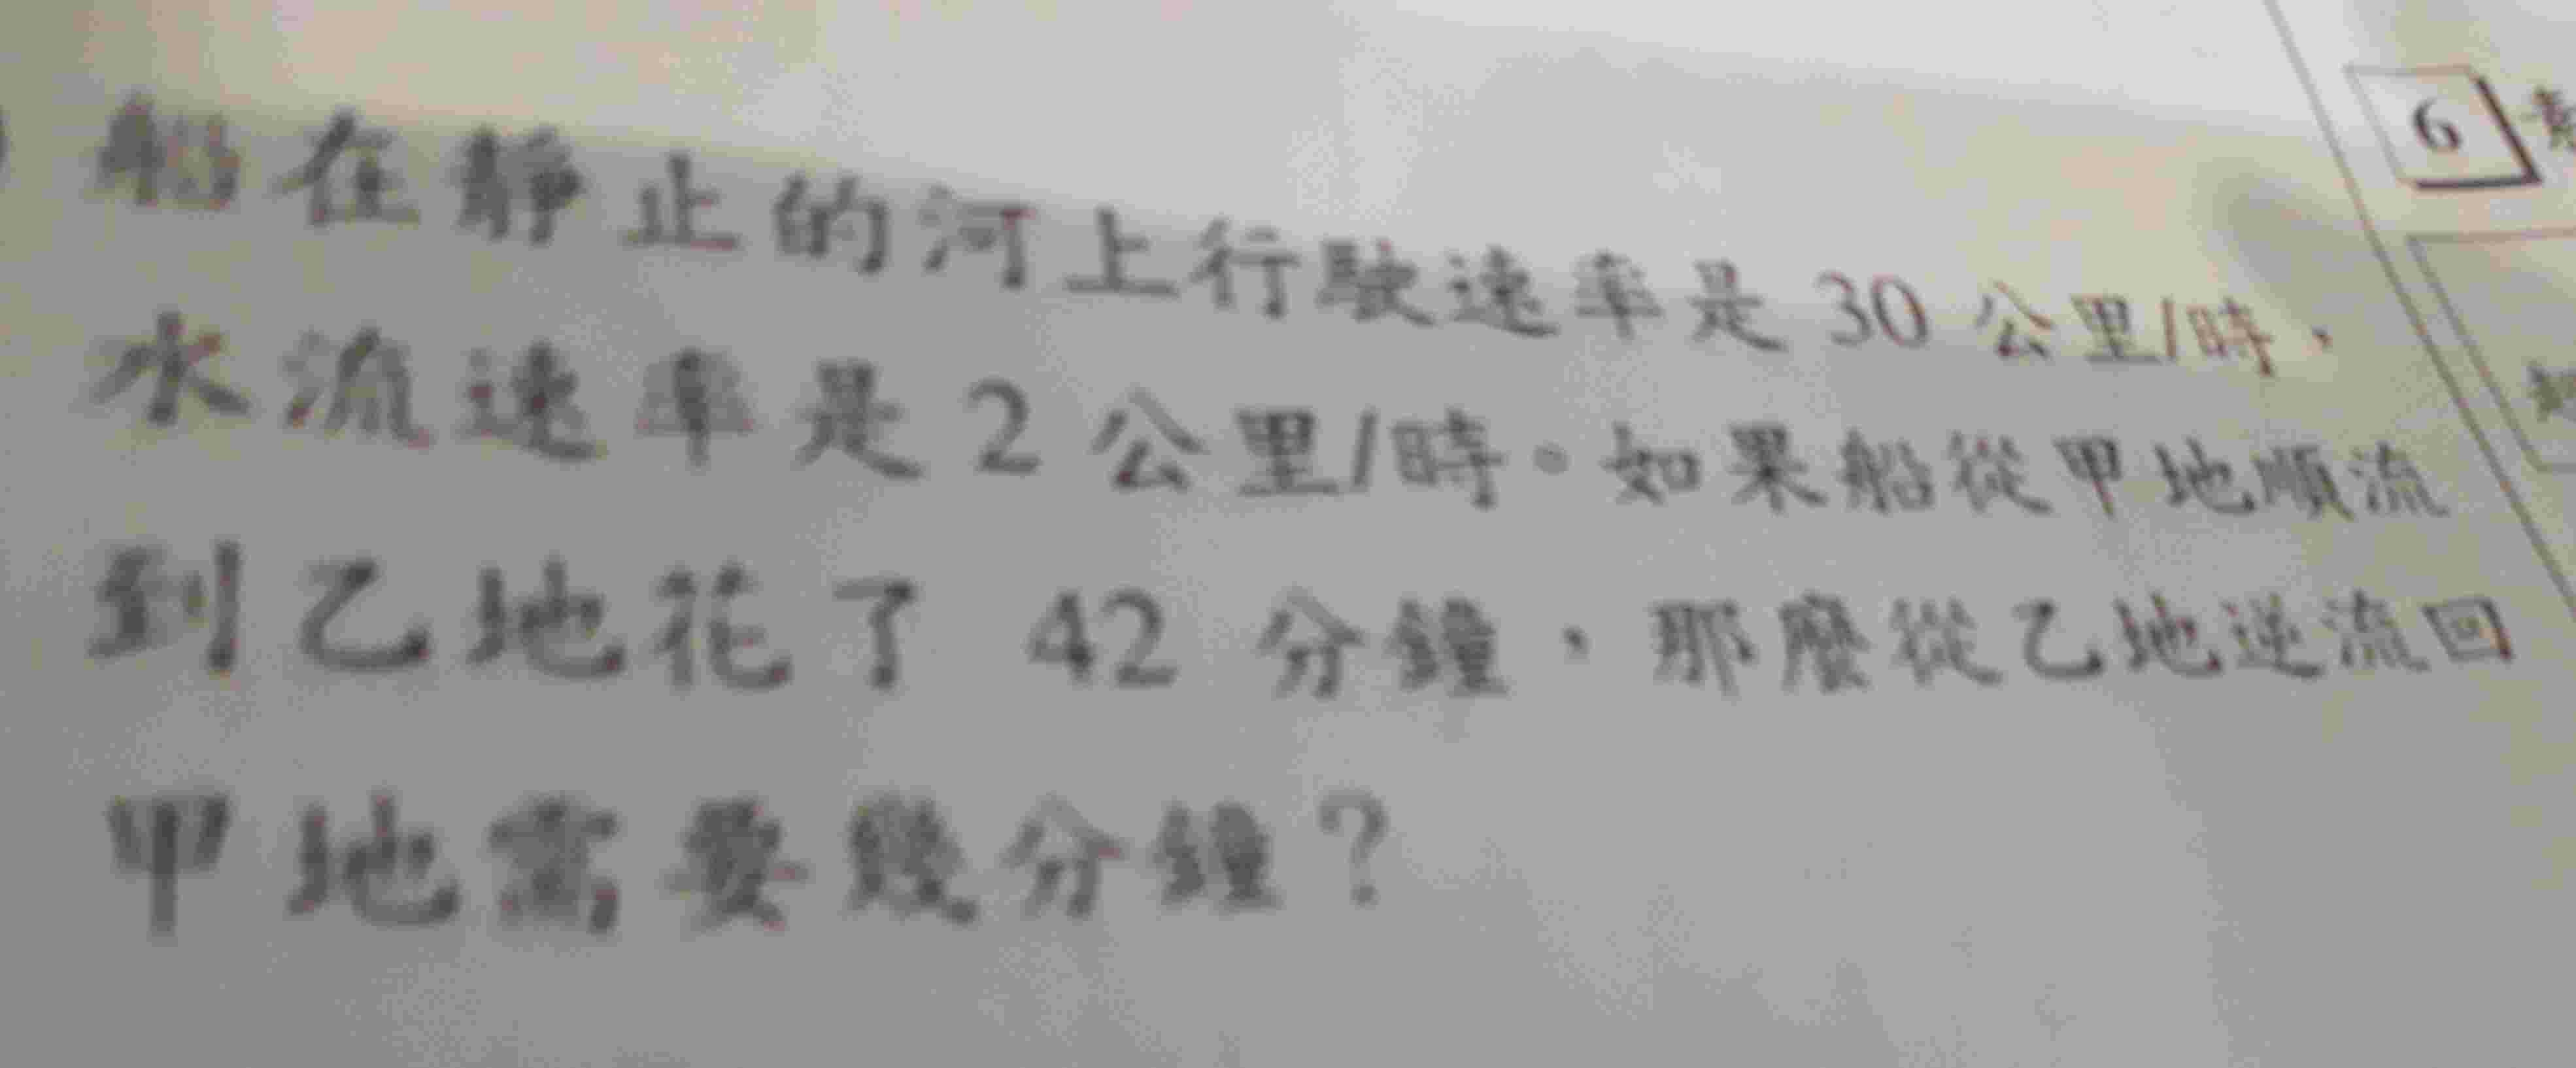 船在靜止的河上行駛速率是30公里/時，
水流速率是2公里/時。如果船從甲地順流
到乙地花了 42 分鐘，那麼從乙地逆流回
甲地需要幾分鐘？
6